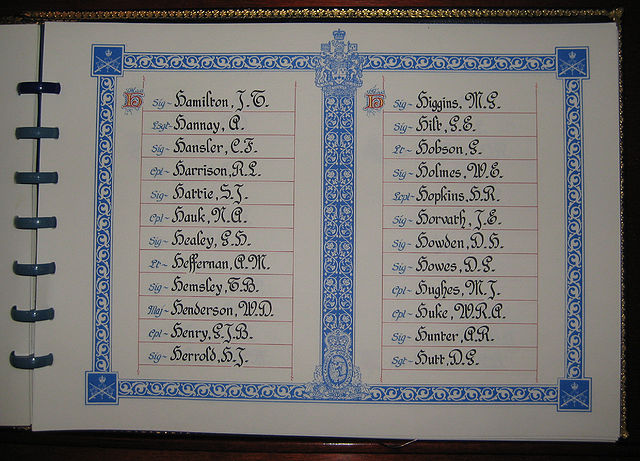 H
Sig~ Hamilton, J.T.
Lsgt~ Hannay, A.
Sig~ Hansler, C.F.
Cpl~ Harrison, R.L.
Sig~ Hattie, S.J.
Cpl~ Hauk, N.A.
Sig~ Healey, G.H.
Lt~ Heffernan, A.M.
Sig~ Hemsley, T.B.
Maj~ Henderson, W.D.
Cpl~ Henry, G.J.B.
Sig~ Herrold, H.J.
H
Sig~ Higgins, M.G.
Sig~ Hilt, G.E.
Lt~ Hobson, G.
Sig~ Holmes, W.E.
Lcpl~ Hopkins, H.R.
Sig~ Horvath, J.E.
Sig~ Howden, D.H.
Sig~ Howes, D.G.
Cpl~ Hughes, M.J.
Cpl~ Huke, W.R.A.
Sig~ Hunter, A.R.
Sgt~ Hutt, D.G.